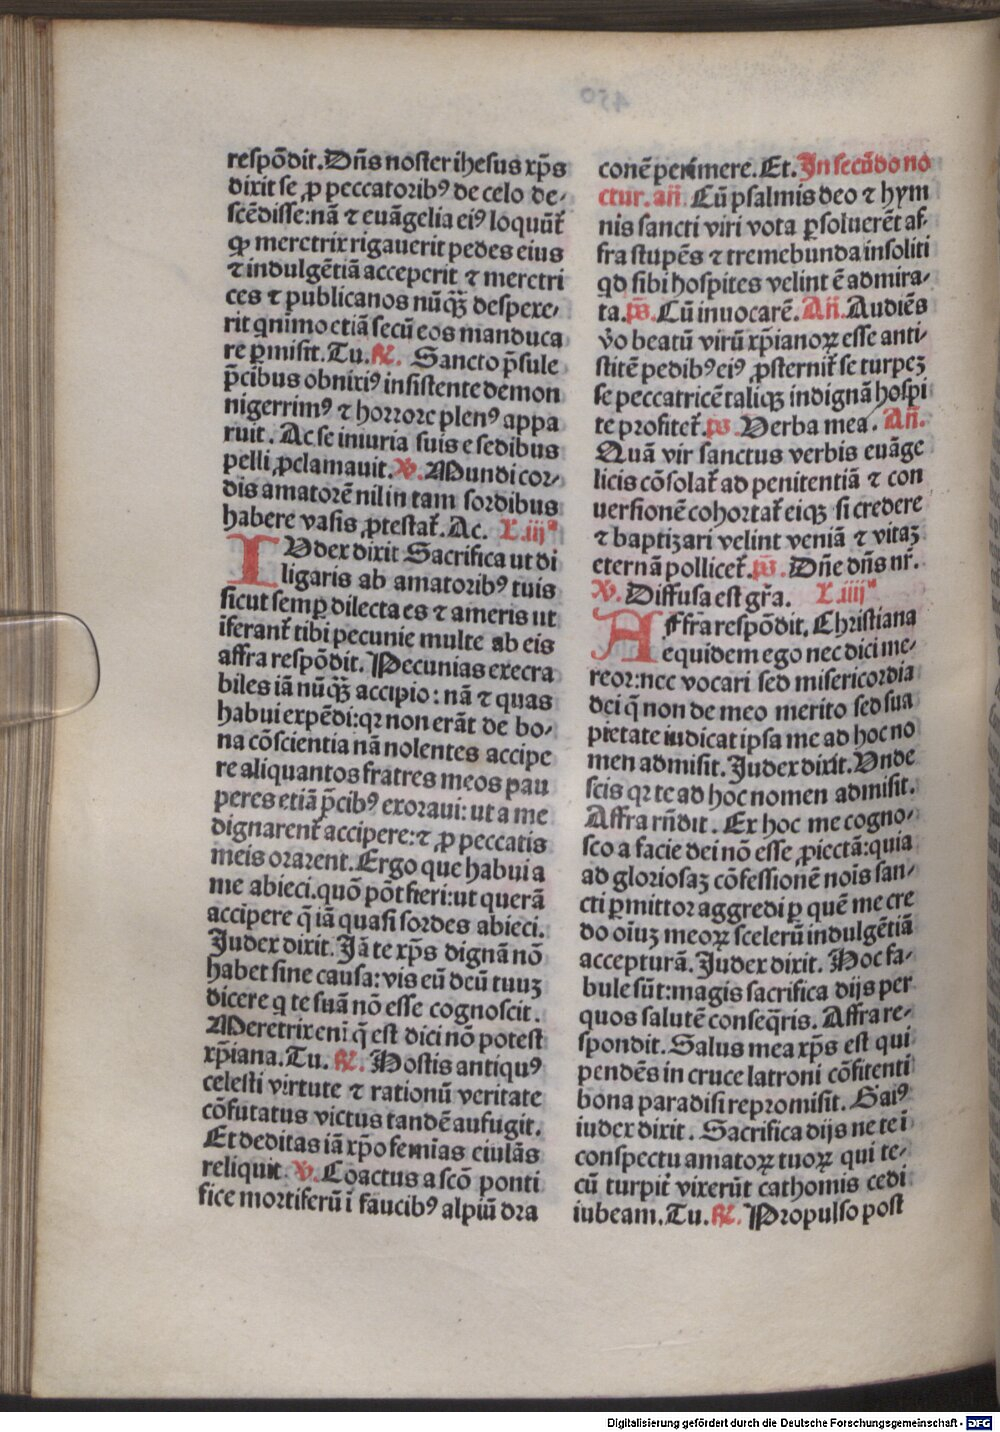 respōdit. Dn̄s noster ihesus xp̄s
dixit se ꝓ peccatoribꝰ de celo de-
scēdisse: nā ⁊ euāgelia eiꝰ loquūt᷑
ꝙ meretrix rigauerit pedes eius
⁊ indulgētiā acceperit ⁊ meretri
ces ⁊ publicanos nūqꝫ̄ despexe-
rit qnimo etiā secū eos manduca
re ꝑmisit. Tu. ℟. Sancto p̄sule
p̄cibus obnixiꝰ insistente demon
nigerrimꝰ ⁊ horrore plenꝰ appa
ruit. Ac se iniuria suis e sedibus
pelli ꝓclamauit. ℣. Mundi cor-
dis amatorē nil in tam sordibus
habere vasis ꝓtestat᷑. Ac. L. iijª
IVdex dixit Sacrifica ut di
ligaris ab amatoribꝰ tuis
sicut semꝑ dilecta es ⁊ ameris ut
īferant᷑ tibi pecunie multe ab eis
affra respōdit. Pecunias execra
biles iā nūqꝫ̄ accipio: nā ⁊ quas
habui expēdi: qꝛ non erāt de bo-
na cōscientia nā nolentes accipe
re aliquantos fratres meos pau
peres etiā p̄cibꝰ exoraui: ut a me
dignarent᷑ accipere: ⁊ ꝓ peccatis
meis orarent. Ergo que habui a
me abieci. quō pōt fieri: ut querā
accipere q̄ iā quasi sordes abieci.
Judex dixit. Jā te xp̄s dignā nō
habet sine causa: vis eū deū tuuꝫ
dicere q te suā nō esse cognoscit.
Meretrix eni̅ q̄ est dici nō potest
xp̄iana. Tu. ℟. Hostis antiquꝰ
celesti virtute ⁊ rationū veritate
cōfutatus victus tandē aufugit.
Et deditas iā xp̄o femīas eiulās
reliquit. ℣. Coactus a scō ponti
fice mortiferū ī faucibꝰ alpiū dra
conē perimere. Et. In secūdo no
ctur. añ. Cū psalmis deo ⁊ hym
nis sancti viri vota ꝑsoluerēt af-
fra stupēs ⁊ tremebunda insoliti
qd sibi hospites velint ē admira-
ta. ps̄. Cū inuocarē. Añ. Audiēs
v̊o beatū virū xp̄ianoꝝ esse anti-
stitē pedibꝰ eiꝰ ꝓsternit᷑ se turpeꝫ
se peccatricē taliqꝫ indignā hospi
te profitet᷑. ps̄. Verba mea. Añ.
Quā vir sanctus verbis euāge
licis cōsolat᷑ ad penitentiā ⁊ con
uersionē cohortat᷑ eiqꝫ si credere
⁊ baptizari velint veniā ⁊ vitaꝫ
eternā pollicet᷑. ps̄. Dn̄e dn̄s nr̄.
℣. Diffusa est gr̄a. L. iiijª
AFfra respōdit. Christiana
equidem ego nec dici me-
reor: nec vocari sed misericordia
dei q̄ non de meo merito sed sua
pietate iudicat ipsa me ad hoc no
men admisit. Judex dixit. Vnde
scis qꝛ te ad hoc nomen admisit.
Affra rn̄dit. Ex hoc me cogno-
sco a facie dei nō esse ꝓiectā: quia
ad gloriosaꝫ cōfessionē nois̄ san-
cti ꝑmittor aggredi ꝑ quē me cre
do oīuꝫ meoꝝ scelerū indulgētiā
accepturā. Judex dixit. Hoc fa-
bule sūt: magis sacrifica dijs per
quos salutē conseq̄ris. Affra re-
spondit. Salus mea xp̄s est qui
pendēs in cruce latroni cōfitenti
bona paradisi repromisit. Gaiꝰ
iudex dixit. Sacrifica dijs ne te ī
conspectu amatoꝝ tuoꝝ qui te-
cū turpit᷑ vixerūt cathomis cedi
iubeam. Tu. ℟. Propulso post
Digitalisierung gefördert durch die Deutsche Forschungsgemeinschaft - DFG